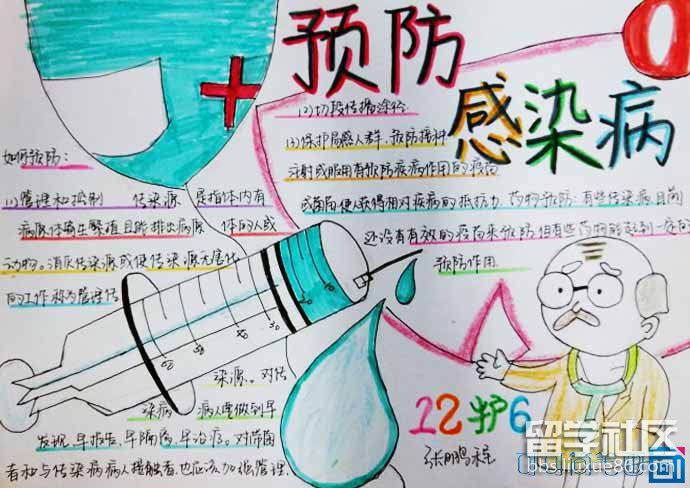 预防
感染病
如何预防：
(1)管理和控制 传染源 是指体内有
病原体寄生繁殖且能排出病原 体的人或
动物。消灭传染源或使传染源无害化
的工作称为管理传
染源、对传
染病 病人要做到早
发现、早报告、早隔离、早治疗。对带菌
者和与传染病病人接触者也应该加强管理.
(2)切段传播途径.
(3)保护易感人群、预防接种
注射或服用有预防疾病作用的疫苗
或菌苗使人获得相对疾病的抵抗力 药物预防：有些传染病目前
还没有有效的疫苗来预防但有些药物能起到一定的
预防作用.
60
50
40
30
20
10
12护6
张鹏
留学社区
bbs.liuxue86.com